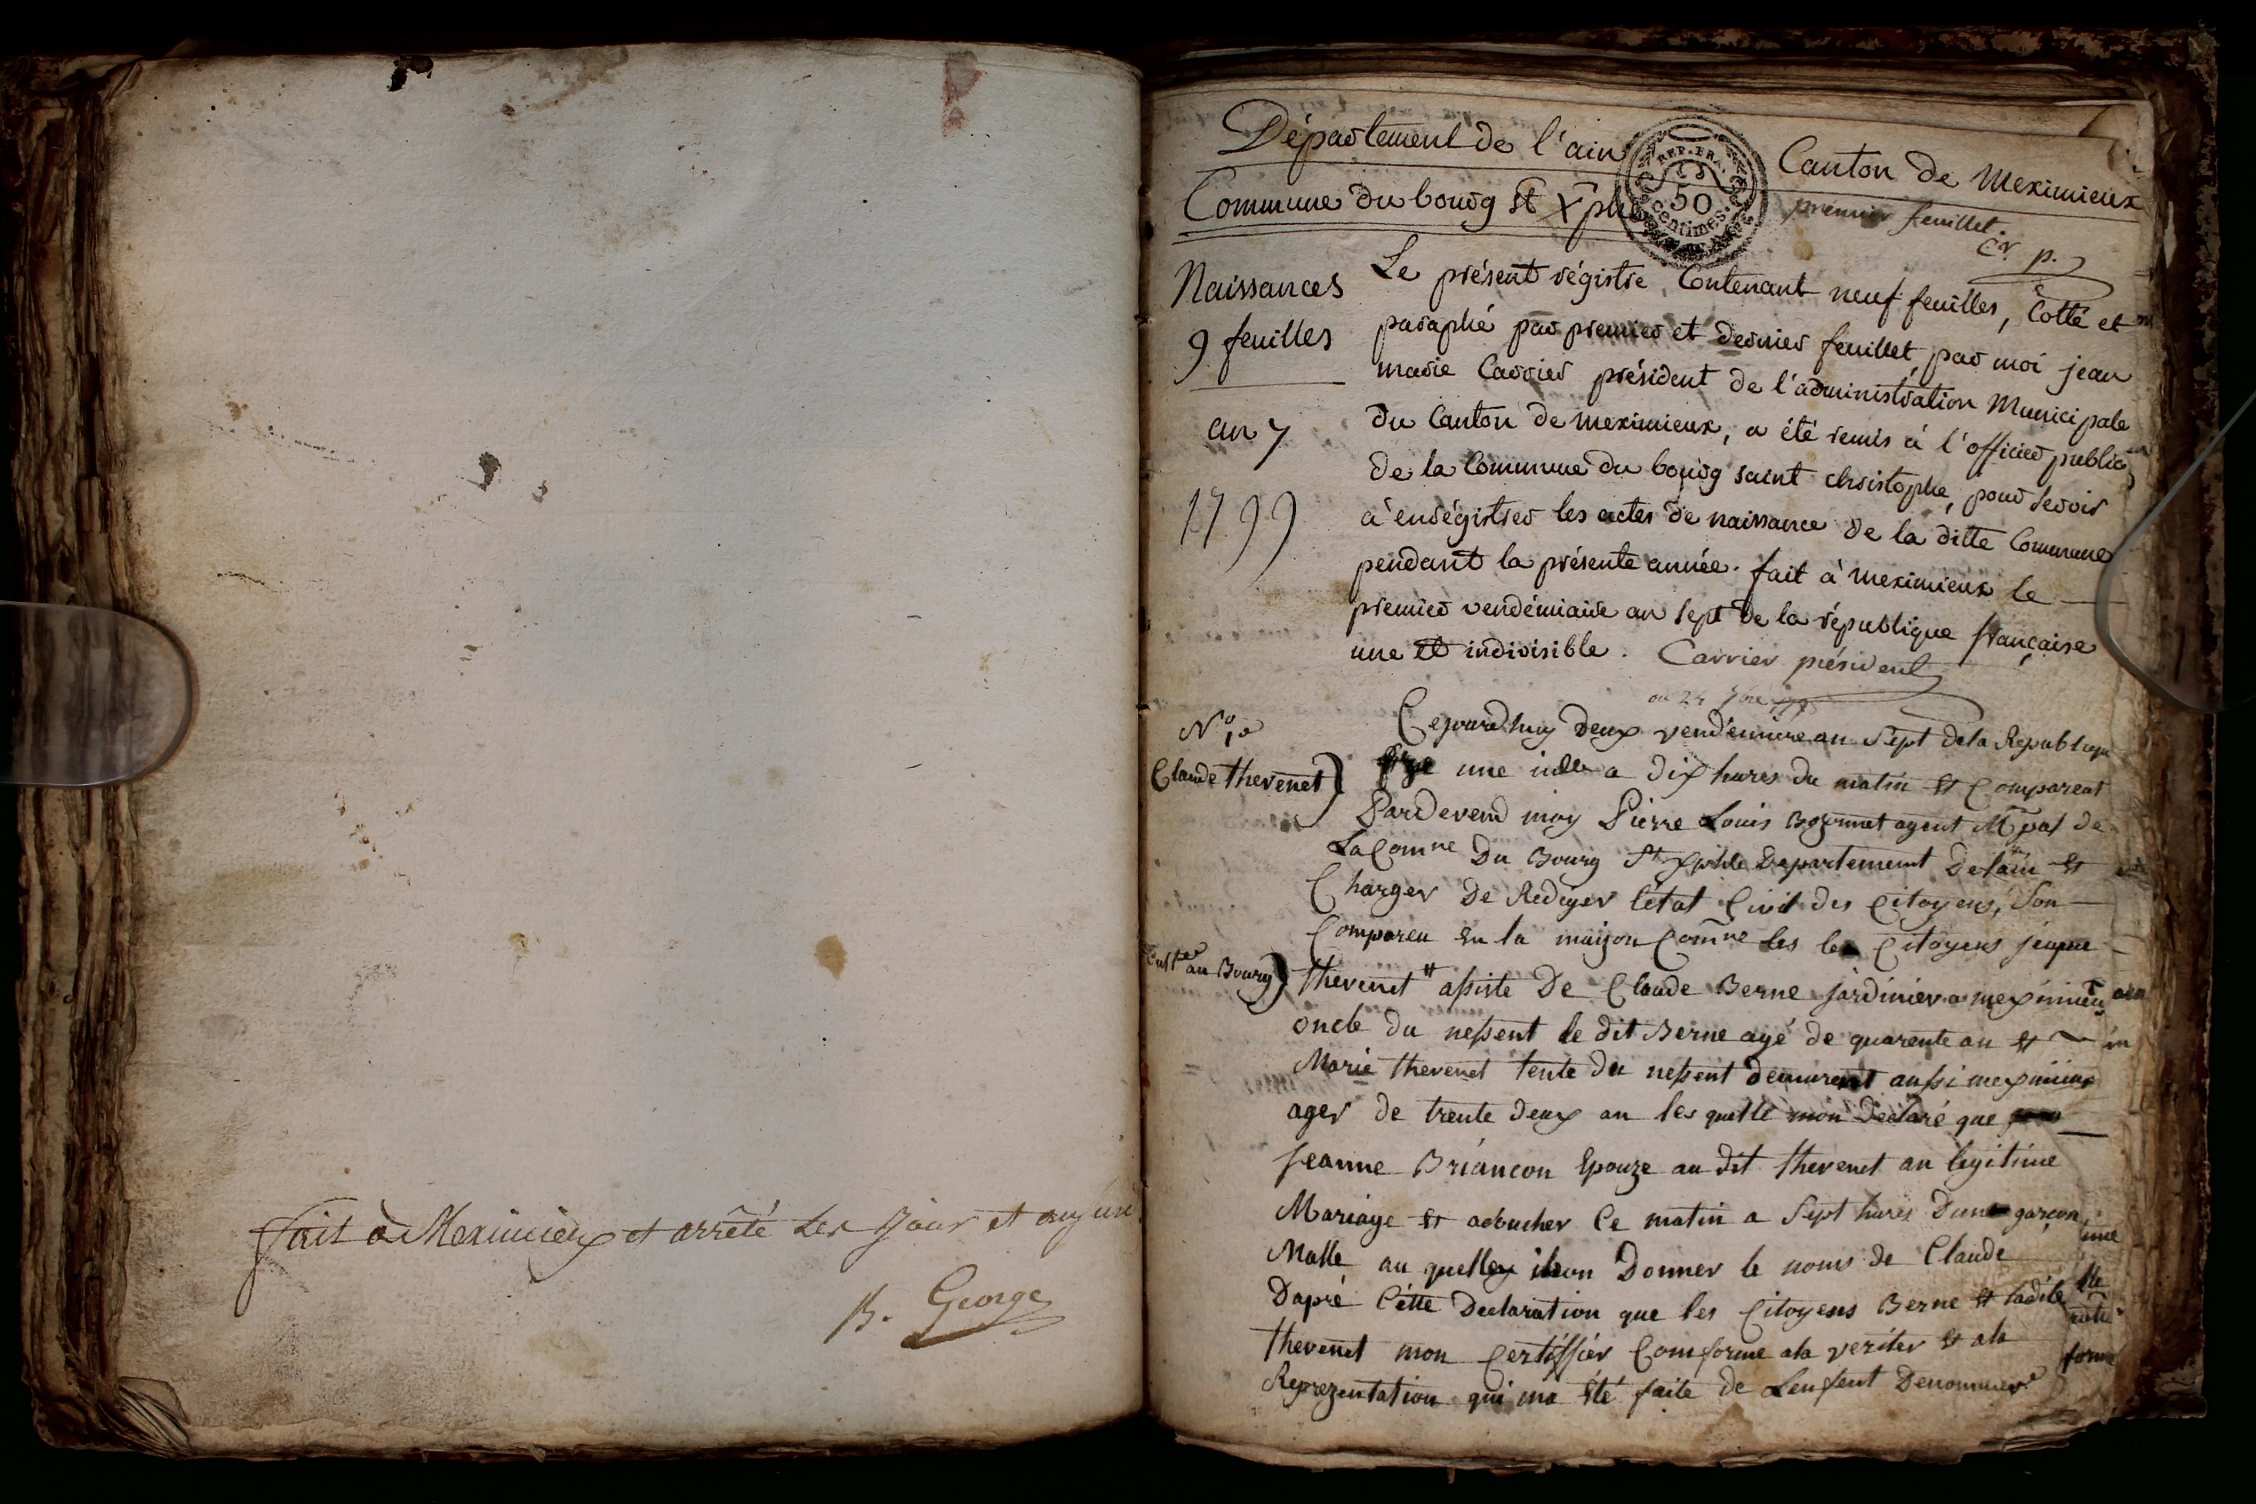 fait à Meximieux et arrêté les jour et an
B. George
Département de l'ain
REP. FRA.
50
centimes
Canton de Meximieux
Commune du bourg St Xphe
premier feuillet.
Cr p.
Naissances
9 feuilles
an 7
1799
Le présent régistre, Contenant neuf feuilles, Cotté et
paraphé par premier et dernier feuillet, par moi jean
marie Carrier président de l'administration Municipale
du Canton de meximieux, a été remis à l'officier public
de la Commune du bourg saint christophe, pour servir
à enrégistrer les actes de naissance de la ditte Commune
pendant la présente année. fait à meximieux le
premier vendémiaire an sept de la république française
une et indivisible. Carrier président
ou 24 7bre
N° 1er
Claude thevenet
Cejourdhuy Deux vendemiere an Sept dela Republique
une indle a dix hures du matin Et Comparent
Pardevend moy Pierre Louis Bozonnet agent Mpal de
La Comne Du Bourg St Xphle Departement Delain Et
Charger De Rediger létat Civil des Citoyens, Son
Comparu En la maison Comne les Citoyens
au Bourg
thevenet assiste De Claude Berne jardinier a meximieu
oncle du nessent le dit Berne agé de quarente an Et
Marie thevenet tente du nessent demurent aussi meximieux
ager de trente deux an les quelle mon Déclaré que
Jeanne Briancon Epouze au dit thevenet an legitime
Mariage Et acoucher Ce matin a Sept hures Dune garcon
Malle au quelley ihon Donner le noms de Claude
Dapré Cétte Declaration que les Citoyens Berne Et ladite
thevenet mon Certiffier Comforme ala veriter Et ala
Reprezentation qui ma Eté faite de Lenfent Denommer